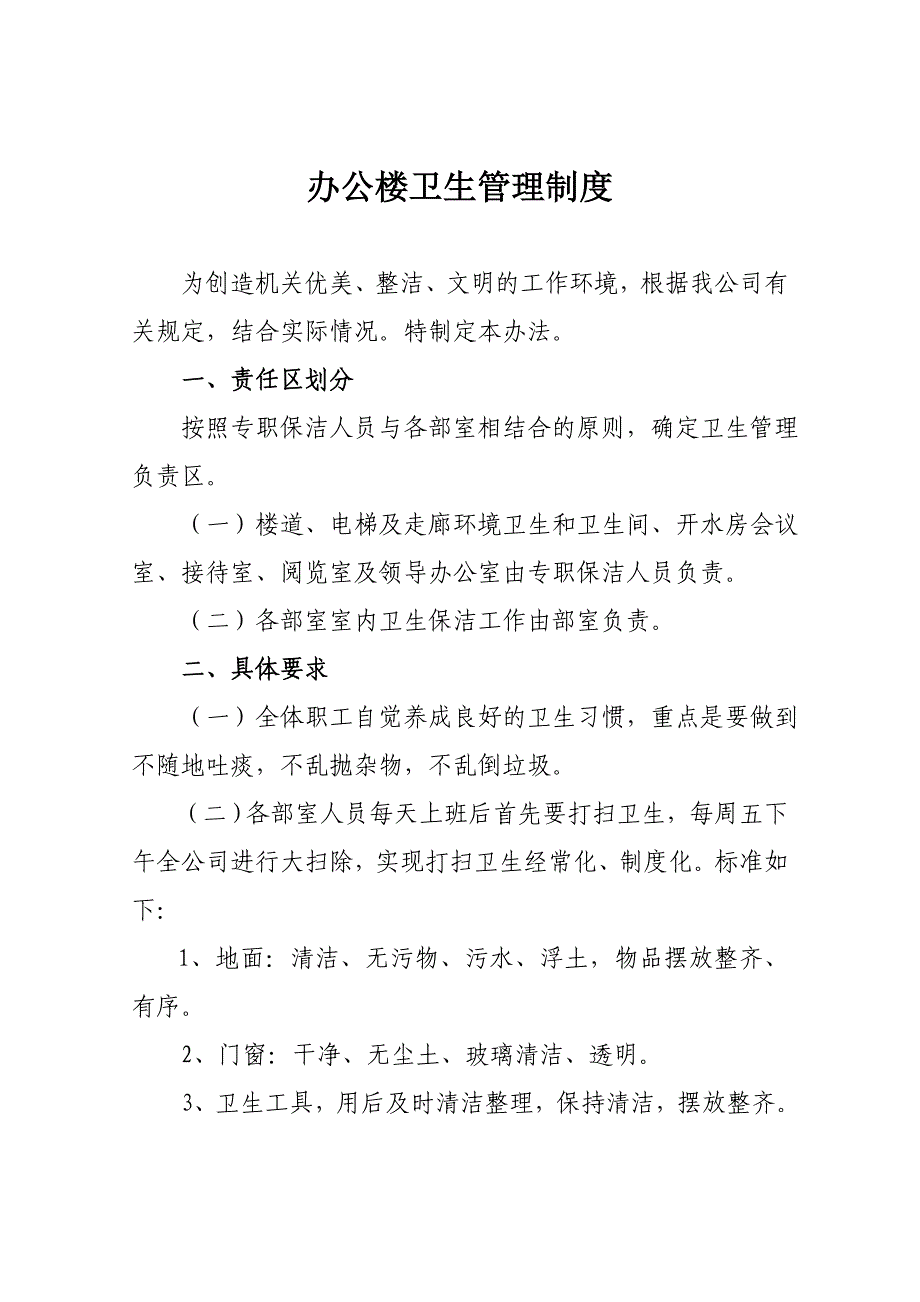 办公楼卫生管理制度
为创造机关优美、整洁、文明的工作环境，根据我公司有
关规定，结合实际情况。特制定本办法。
一、责任区划分
按照专职保洁人员与各部室相结合的原则，确定卫生管理
负责区。
（一）楼道、电梯及走廊环境卫生和卫生间、开水房会议
室、接待室、阅览室及领导办公室由专职保洁人员负责。
（二）各部室室内卫生保洁工作由部室负责。
二、具体要求
（一）全体职工自觉养成良好的卫生习惯，重点是要做到
不随地吐痰，不乱抛杂物，不乱倒垃圾。
（二）各部室人员每天上班后首先要打扫卫生，每周五下
午全公司进行大扫除，实现打扫卫生经常化、制度化。标准如
下：
1、地面：清洁、无污物、污水、浮土，物品摆放整齐、
有序。
2、门窗：干净、无尘土、玻璃清洁、透明。
3、卫生工具，用后及时清洁整理，保持清洁，摆放整齐。